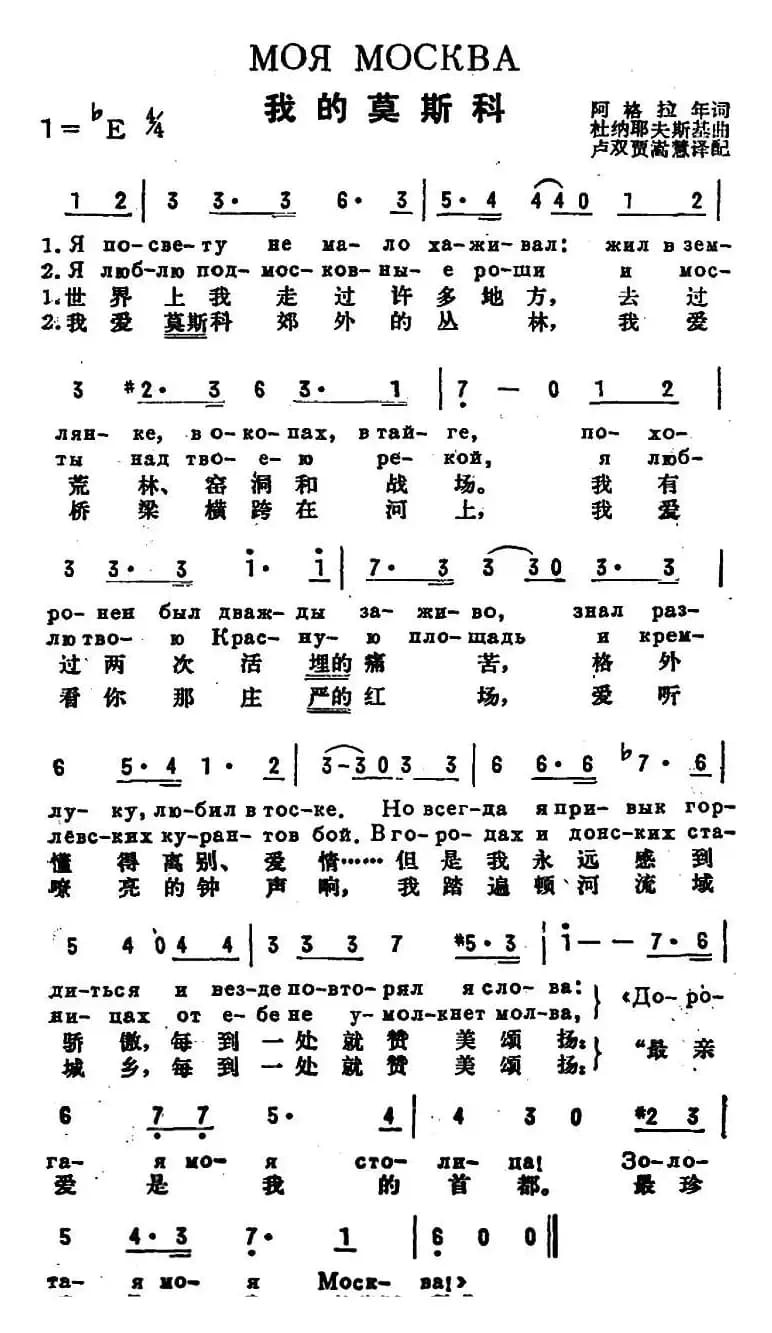 МОЯ МОСКВА
我的莫斯科
1=♭E 4/4
阿格拉年词
杜纳耶夫斯基曲
卢双贾嵩慧译配
1 2 | 3 3· 3 6· 3 | 5· 4 4 4 0 1 2 |
1. Я по-све-ту не ма-ло ха-жи-вал: жил в зем-
2. Я люб-лю под-мос-ков-ны-е рощи и мос-
1.世界上我走过许多地方，去过
2.我爱莫斯科郊外的丛林，我爱
3 #2· 3 6 3· 1 | 7 — 0 1 2 |
лян-ке, в о-ко-пах, в тай-ге, по-хо-
ты над тво-е-ю ре-кой, я люб-
荒林、窑洞和战场。我有
桥梁横跨在河上，我爱
3 3· 3 i· i | 7· 3 3 3 0 3· 3 |
ро-нен был дваж-ды за-жи-во, знал раз-
лю тво-ю Крас-ну-ю пло-щадь и крем-
过两次活埋的痛苦，格外
看你那庄严的红场，爱听
6 5· 4 1· 2 | 3-3 0 3 3 | 6 6· 6 ♭7· 6 |
лу-ку, лю-бил в тос-ке. Но всег-да я при-вык гор-
лёвс-ких ку-ран-тов бой. В го-ро-дах и донс-ких ста-
懂得离别、爱情……但是我永远感到
嘹亮的钟声响，我踏遍顿河流域
5 4 0 4 4 | 3 3 3 7 #5· 3 | i — — 7· 6 |
ди-ться и вез-де по-вто-рял я сло-ва: «До-ро-
ни-цах от е-бе не у-мол-кнет мол-ва,
骄傲，每到一处就赞美颂扬： “最亲
城乡，每到一处就赞美颂扬：
6 7 7 5· 4 | 4 3 0 #2 3 |
га-я мо-я сто-ли-ца! Зо-ло-
爱是我的首都。最珍
5 4· 3 7· 1 | 6 0 0 ‖
та-я мо-я Моск-ва!»